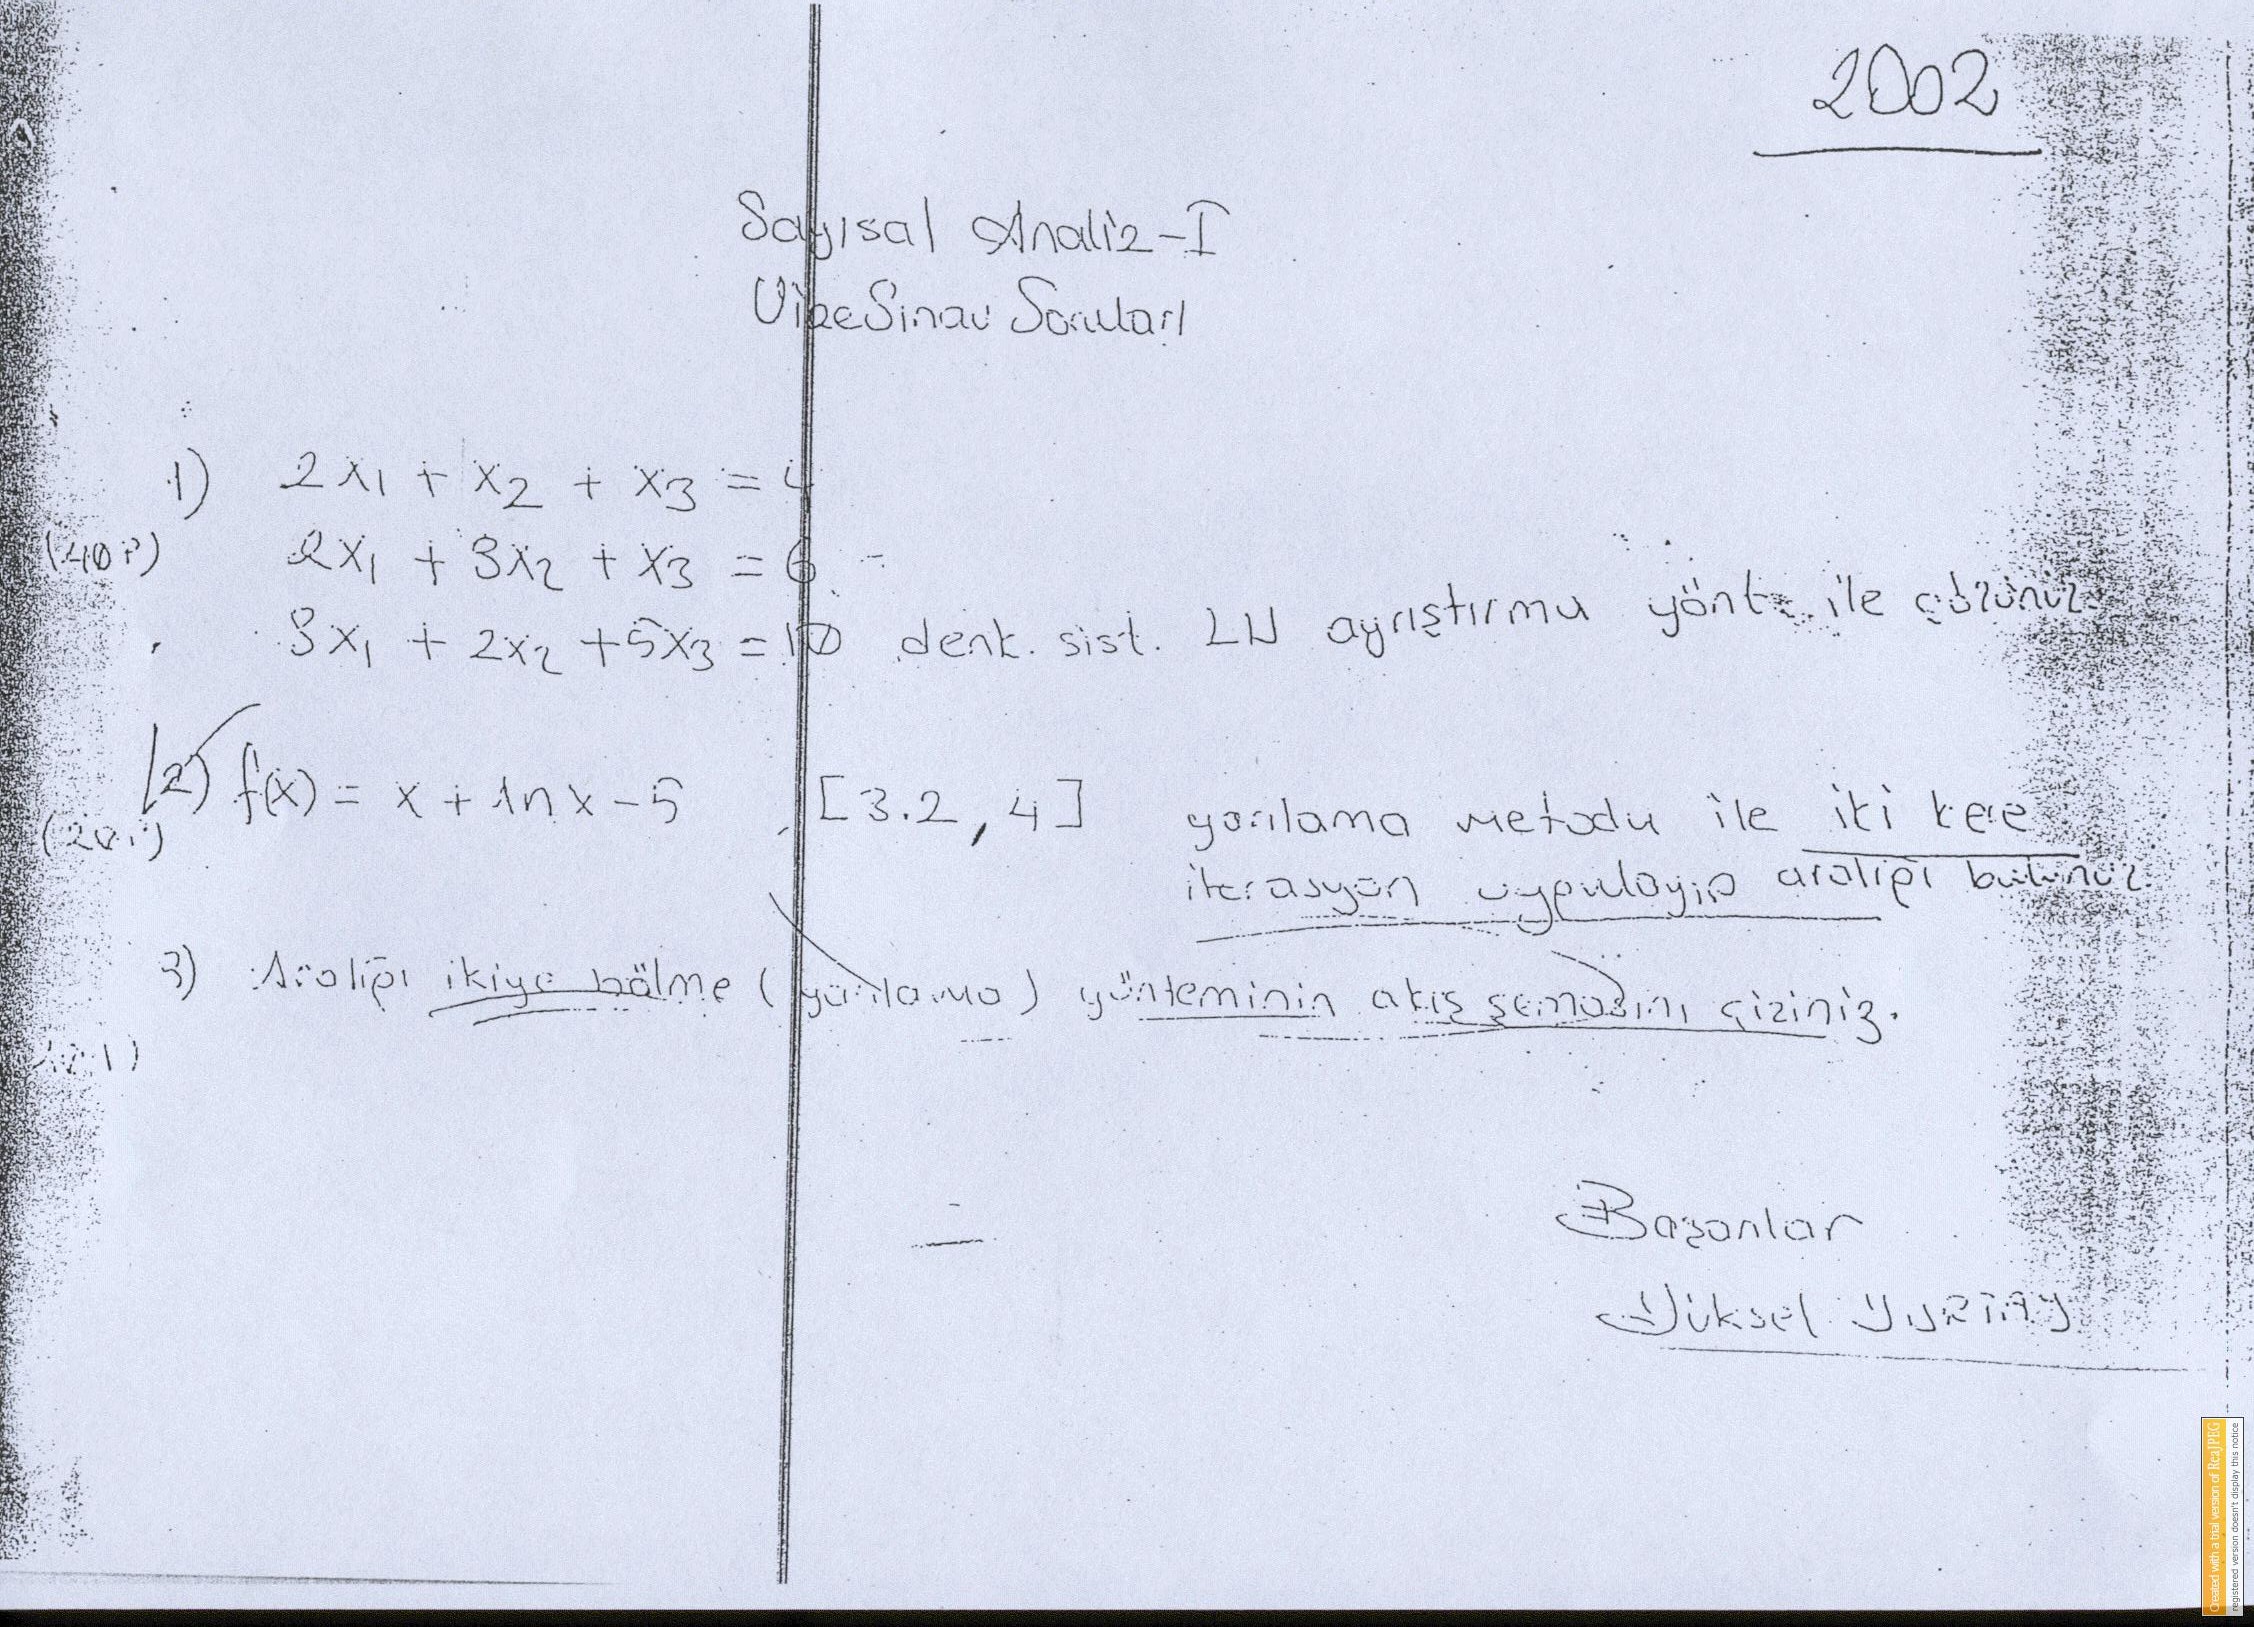 2002
Sayısal Analiz-I
Vize Sınav Soruları
1) 2x₁ + x₂ + x₃ = 4
(40 P) 2x₁ + 3x₂ + x₃ = 6
3x₁ + 2x₂ + 5x₃ = 10 denk. sist. LU ayrıştırma yönt. ile çözünüz.
2) f(x) = x + ln x - 5 , [3.2, 4] yarılama metodu ile iki kere
iterasyon uygulayıp aralığı bulunuz.
3) Aralığı ikiye bölme (yarılama) yönteminin akış şemasını çiziniz.
Başarılar
Yüksel YURTAY
Created with a trial version of ReaJPEG
registered version doesn't display this notice